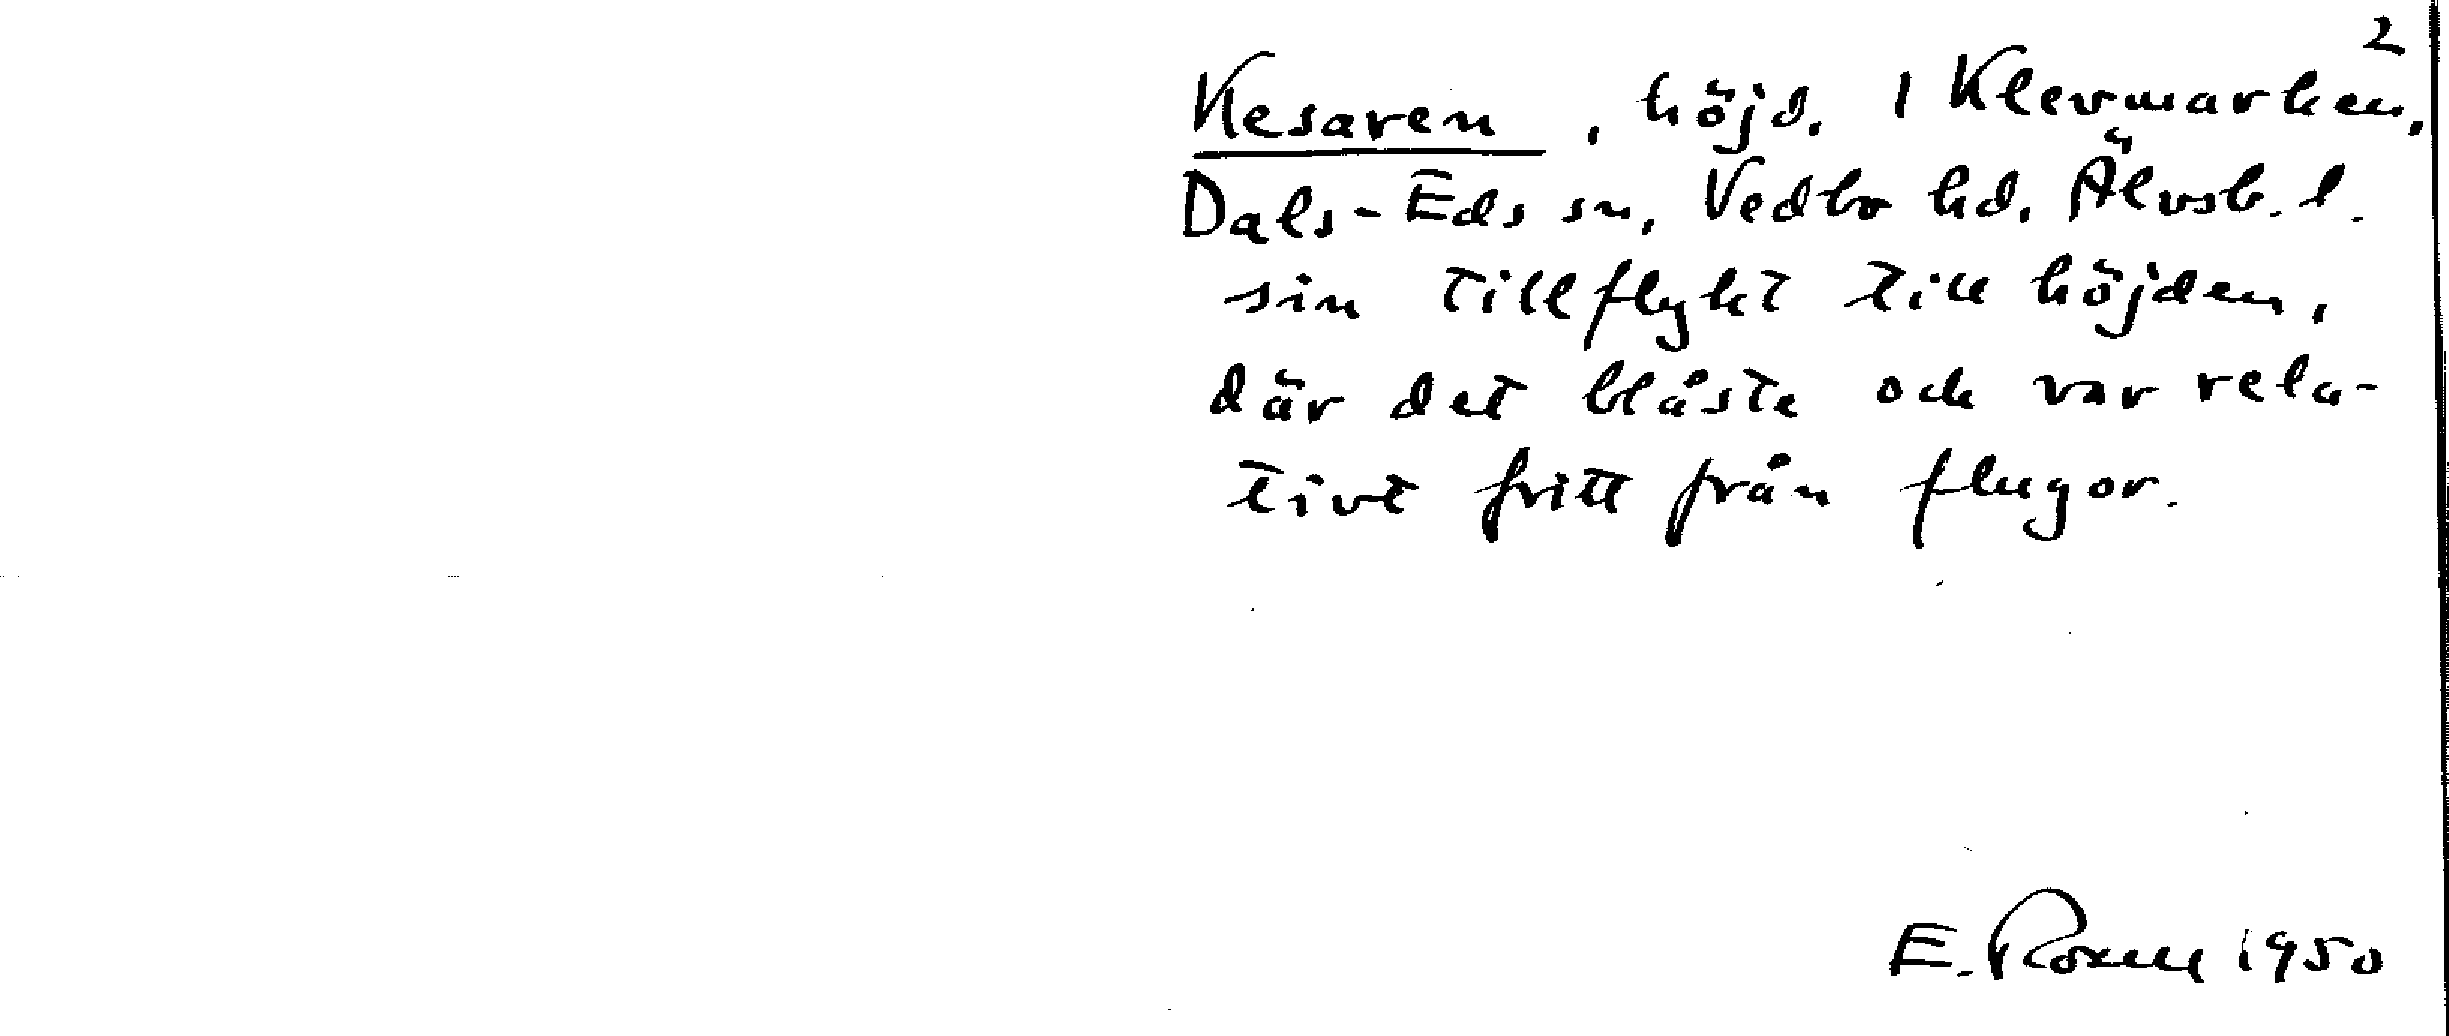 2
Kesaren, höjd. 1 Klevmarken,
Dals-Eds sn, Vedbo hd. Älvsb. l.
sin tillflykt till höjden,
där det blåste och var rela-
tivt fritt från flugor.
E. 1950